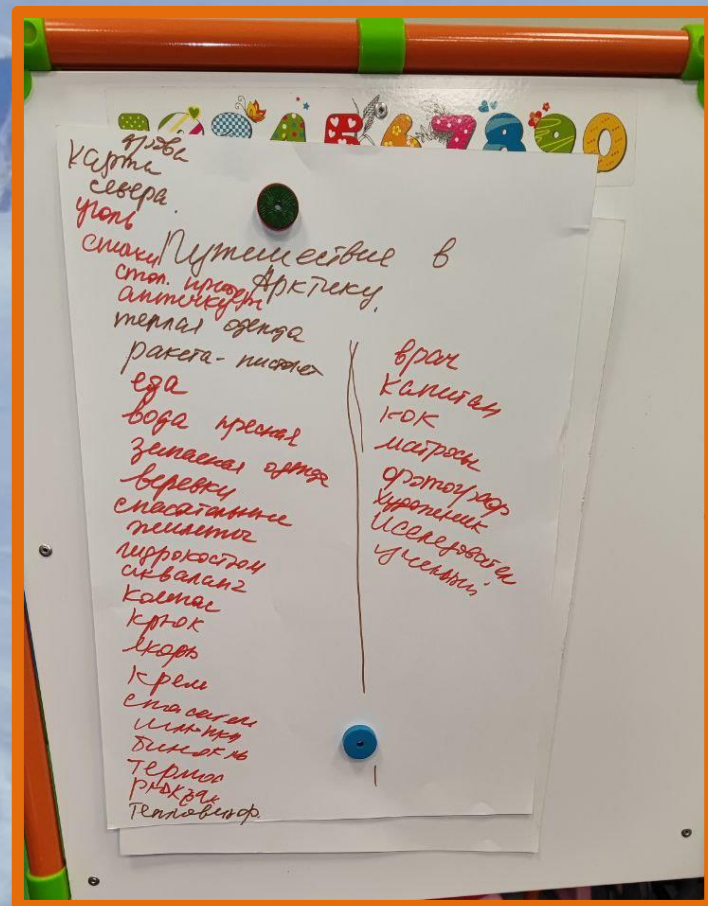 1 2 3 4 5 6 7 8 9 0
дрова
карта
севера.
уголь
Путешествие в
Арктику.
аптечку
теплая одежда
ракета-пистолет
еда
вода пресная
запасная одежда
веревки
спасательные
жилеты
гидрокостюм
акваланг
компас
крюк
якорь
крем
спасател
шлюпки
бинокль
термос
рюкзак
тепловизор.
врач
капитан
кок
матросы
фотограф
художник
исследовател
ученый